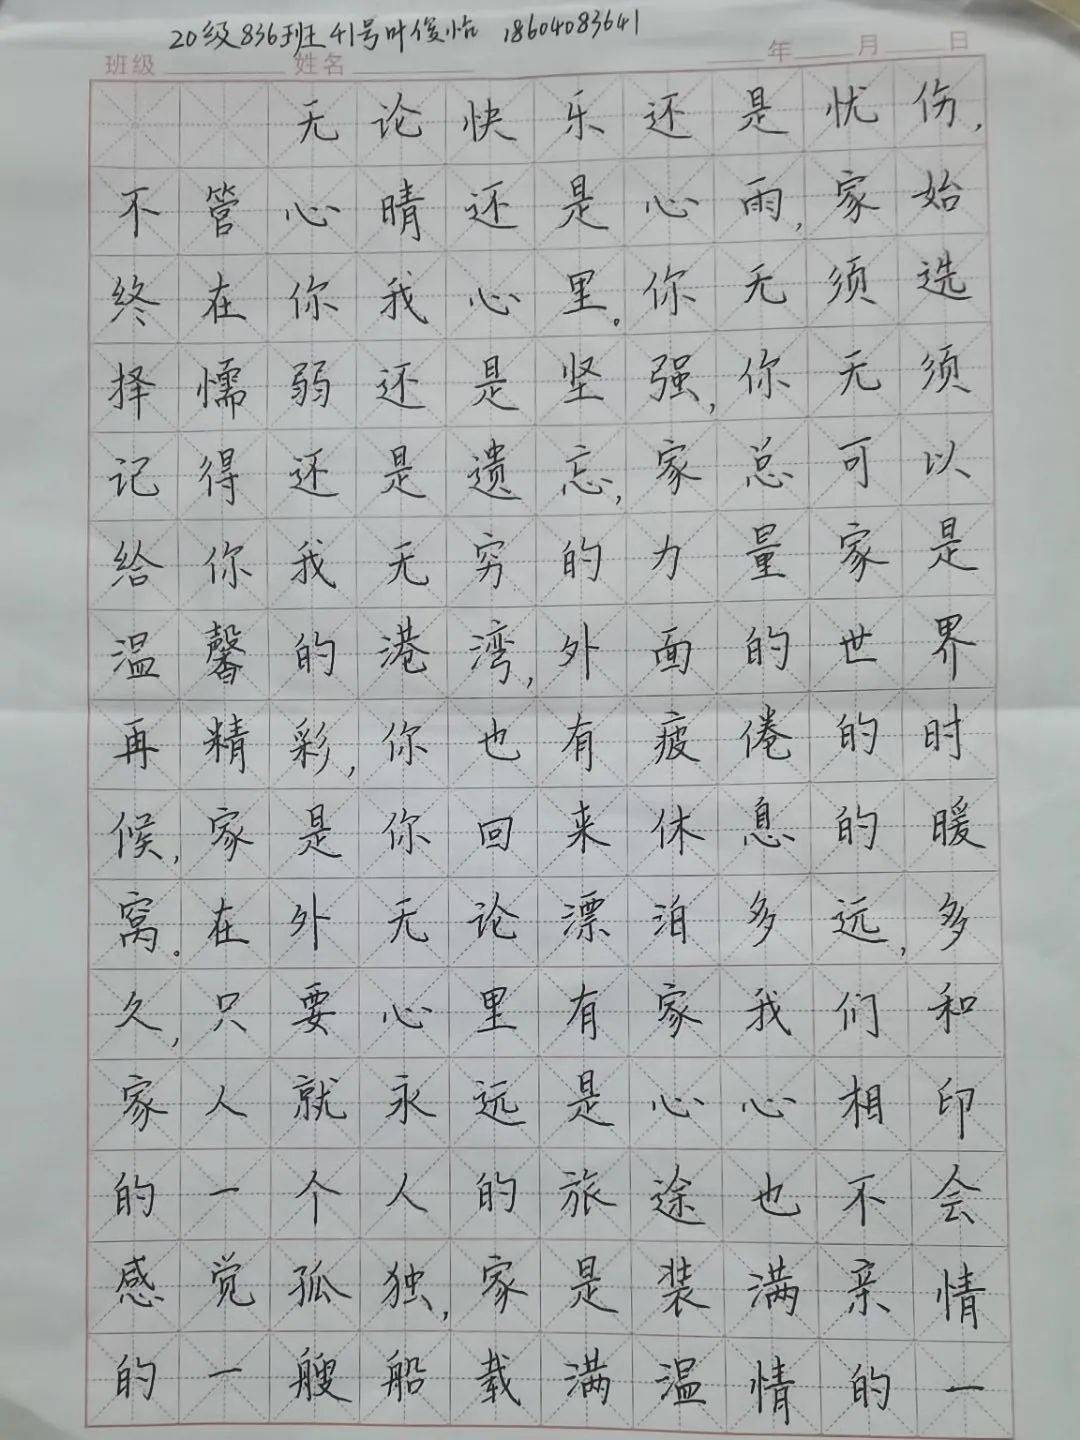 20级836班41号叶俊怡 18604083641
班级 姓名 年 月 日
无论快乐还是忧伤,
不管心晴还是心雨,家始
终在你我心里。你无须选
择懦弱还是坚强,你无须
记得还是遗忘,家总可以
给你我无穷的力量家是
温馨的港湾,外面的世界
再精彩,你也有疲倦的时
候,家是你回来休息的暖
窝。在外无论漂泊多远,多
久,只要心里有家我们和
家人就永远是心心相印
的一个人的旅途也不会
感觉孤独,家是装满亲情
的一艘船载满温情的一